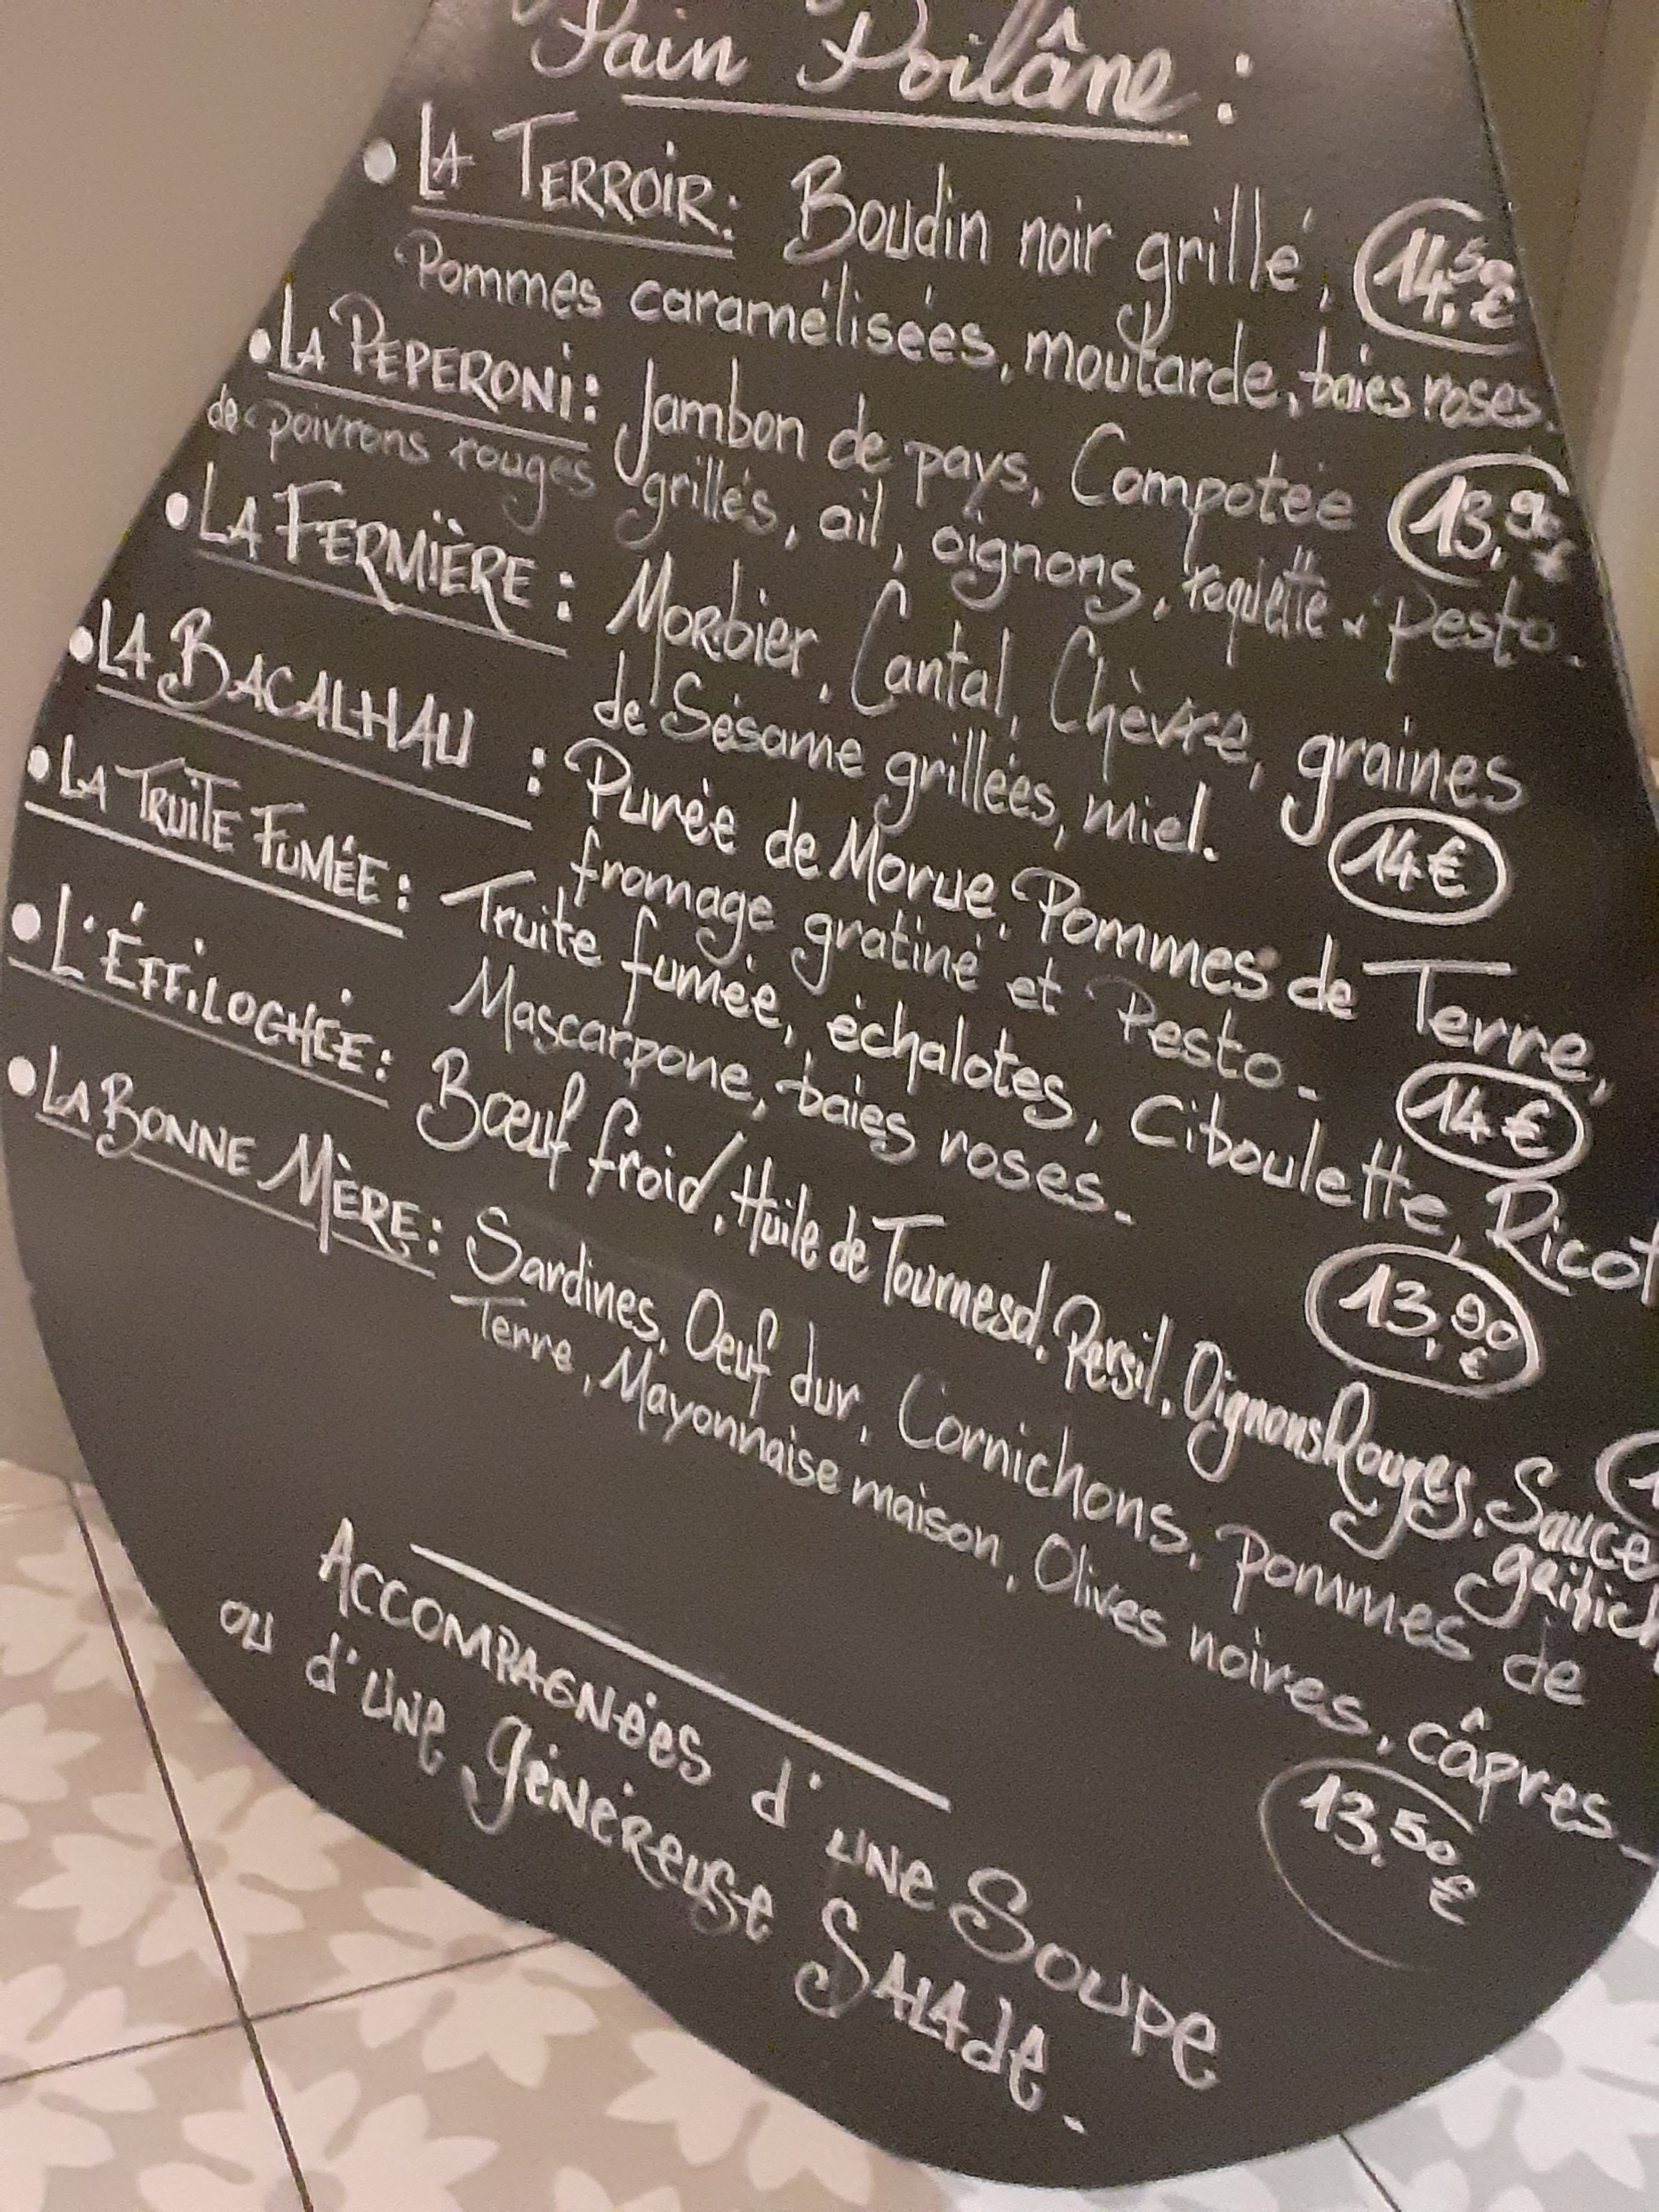 Pain Poilâne :
• LA TERROIR : Boudin noir grillé, 14,50 €
Pommes caramélisées, moutarde, baies roses.
• LA PEPERONI : Jambon de pays, Compotée 13,90 €
de poivrons rouges grillés, ail, oignons, roquette, Pesto.
• LA FERMIÈRE : Morbier, Cantal, Chèvre, graines
de Sésame grillées, miel. 14 €
• LA BACALHAU : Purée de Morue, Pommes de Terre,
fromage gratiné et Pesto. 14 €
• LA TRUITE FUMÉE : Truite fumée, échalotes, Ciboulette, Ricot
Mascarpone, baies roses. 13,90 €
• L'ÉFFILOCHÉE : Bœuf froid, Huile de Tournesol, Persil, Oignons Rouges, Sauce
• LA BONNE MÈRE : Sardines, Oeuf dur, Cornichons, Pommes de
Terre, Mayonnaise maison, Olives noires, câpres.
13,50 €
ACCOMPAGNÉES d'UNE SOUPE
ou d'UNE GÉNÉREUSE SALADE.